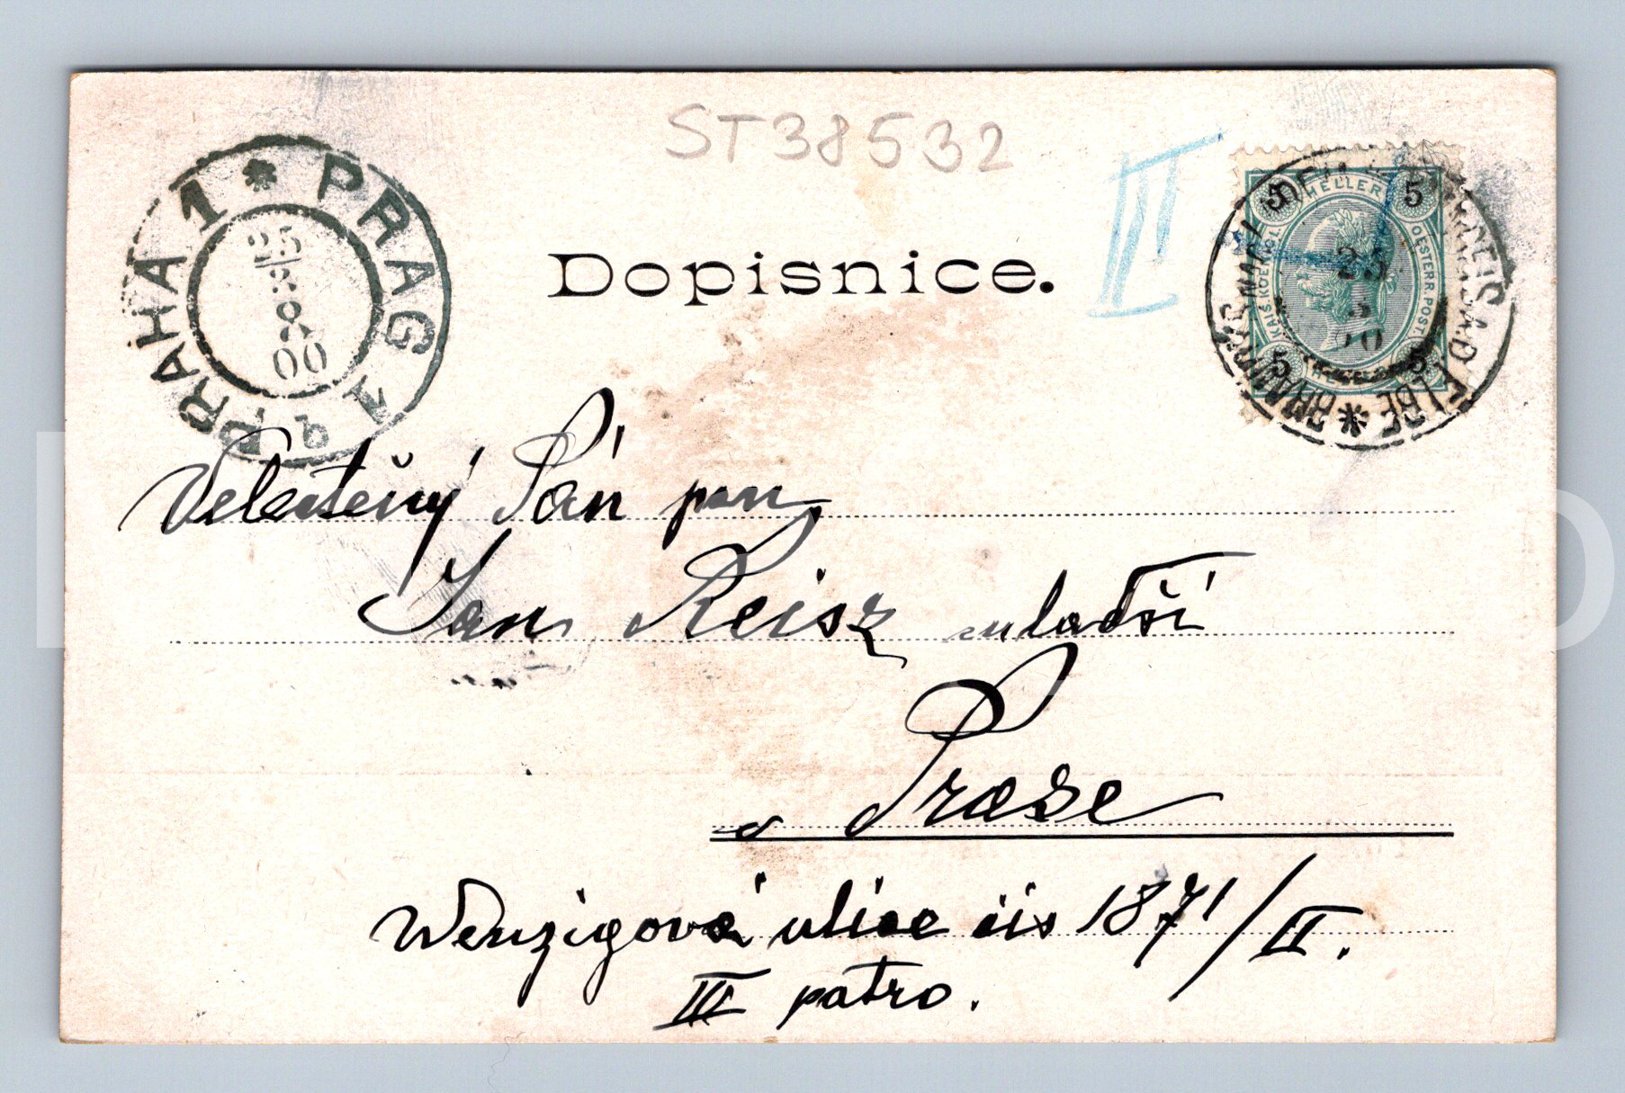 ST38532
II
PRAHA 1 * PRAG 1
25
00
b
HELLER
5 5
KAIS. KOENIGL. OESTERR. POST.
5 5
25
00
BRANDÝS NAD LABEM * BRANDEIS A. D. ELBE *
Dopisnice.
Velectěný Pán pan
Jan Reisz mladší
v Praze
Wenzigová ulice čís 1871/II.
III patro.